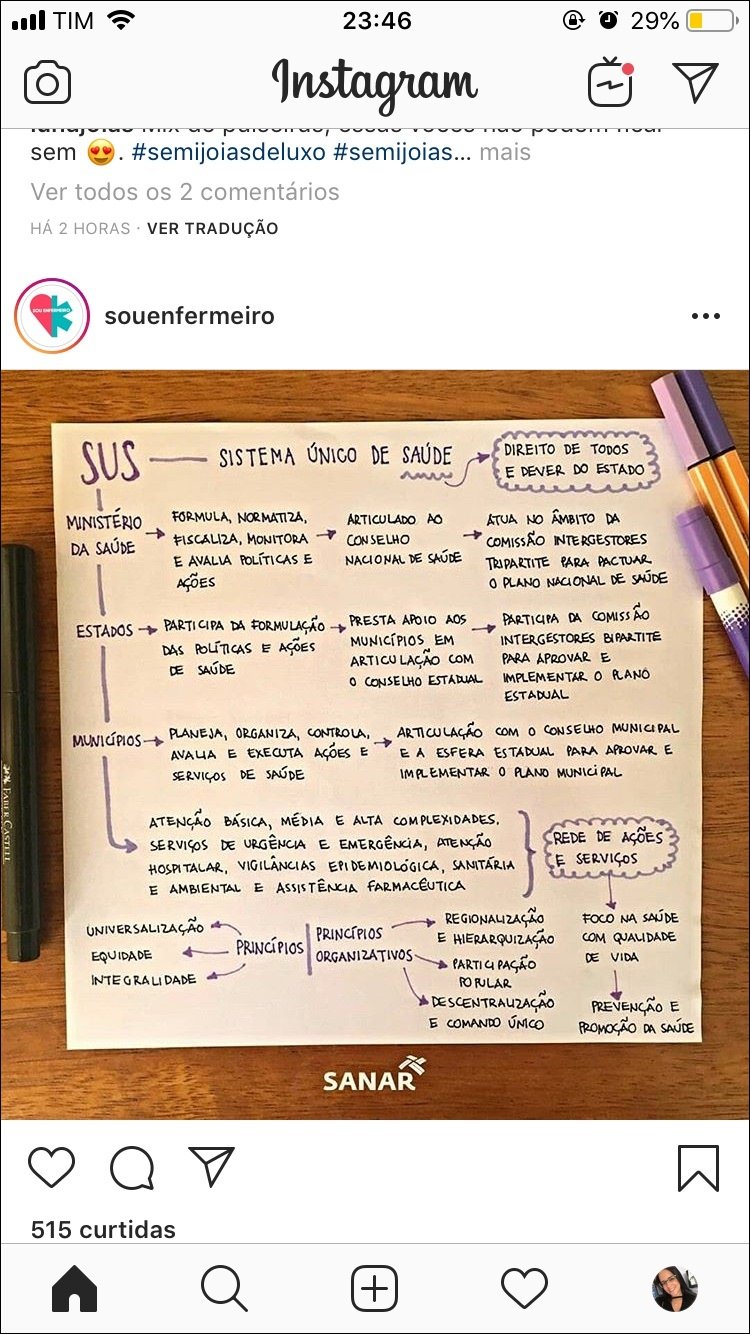 TIM 23:46 29%
Instagram
sem 😍. #semijoiasdeluxo #semijoias... mais
Ver todos os 2 comentários
HÁ 2 HORAS · VER TRADUÇÃO
SOU ENFERMEIRO
souenfermeiro
SUS — SISTEMA ÚNICO DE SAÚDE
DIREITO DE TODOS
E DEVER DO ESTADO
MINISTÉRIO
DA SAÚDE
FORMULA, NORMATIZA,
FISCALIZA, MONITORA
E AVALIA POLÍTICAS E
AÇÕES
ARTICULADO AO
CONSELHO
NACIONAL DE SAÚDE
ATUA NO ÂMBITO DA
COMISSÃO INTERGESTORES
TRIPARTITE PARA PACTUAR
O PLANO NACIONAL DE SAÚDE
ESTADOS
PARTICIPA DA FORMULAÇÃO
DAS POLÍTICAS E AÇÕES
DE SAÚDE
PRESTA APOIO AOS
MUNICÍPIOS EM
ARTICULAÇÃO COM
O CONSELHO ESTADUAL
PARTICIPA DA COMISSÃO
INTERGESTORES BIPARTITE
PARA APROVAR E
IMPLEMENTAR O PLANO
ESTADUAL
MUNICÍPIOS
PLANEJA, ORGANIZA, CONTROLA,
AVALIA E EXECUTA AÇÕES E
SERVIÇOS DE SAÚDE
ARTICULAÇÃO COM O CONSELHO MUNICIPAL
E A ESFERA ESTADUAL PARA APROVAR E
IMPLEMENTAR O PLANO MUNICIPAL
ATENÇÃO BÁSICA, MÉDIA E ALTA COMPLEXIDADES,
SERVIÇOS DE URGÊNCIA E EMERGÊNCIA, ATENÇÃO
HOSPITALAR, VIGILÂNCIAS EPIDEMIOLÓGICA, SANITÁRIA
E AMBIENTAL E ASSISTÊNCIA FARMACÊUTICA
REDE DE AÇÕES
E SERVIÇOS
FOCO NA SAÚDE
COM QUALIDADE
DE VIDA
PREVENÇÃO E
PROMOÇÃO DA SAÚDE
UNIVERSALIZAÇÃO
EQUIDADE
INTEGRALIDADE
PRINCÍPIOS
PRINCÍPIOS
ORGANIZATIVOS
REGIONALIZAÇÃO
E HIERARQUIZAÇÃO
PARTICIPAÇÃO
POPULAR
DESCENTRALIZAÇÃO
E COMANDO ÚNICO
FABER CASTELL
SANAR
515 curtidas